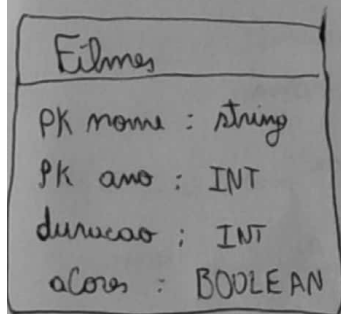 Filmes
PK nome : string
PK ano : INT
duracao : INT
aCores : BOOLEAN